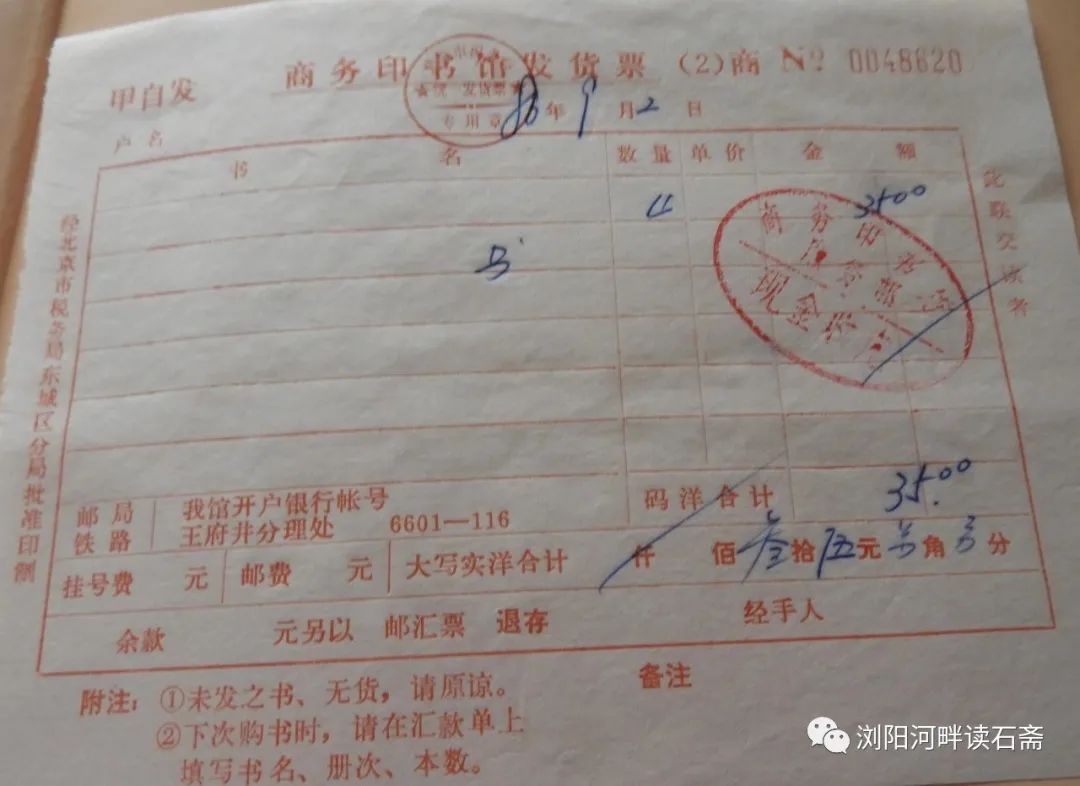 商务印书馆发货票 (2)商 Nº 0048620
甲自发
发货票
专用章
户名 86年9月2日
书名 数量 单价 金额
4 35.00
书
商务印书馆
现金
码洋合计 35.00
邮局 铁路 我馆开户银行帐号
王府井分理处 6601—116
挂号费 元 邮费 元 大写实洋合计 仟 佰 叁拾伍元 角 分
余款 元另以 邮汇票 退存 经手人
附注：①未发之书、无货，请原谅。
②下次购书时，请在汇款单上
填写书名、册次、本数。
备注
经北京市税务局东城区分局批准印制
此联交读者
浏阳河畔读石斋